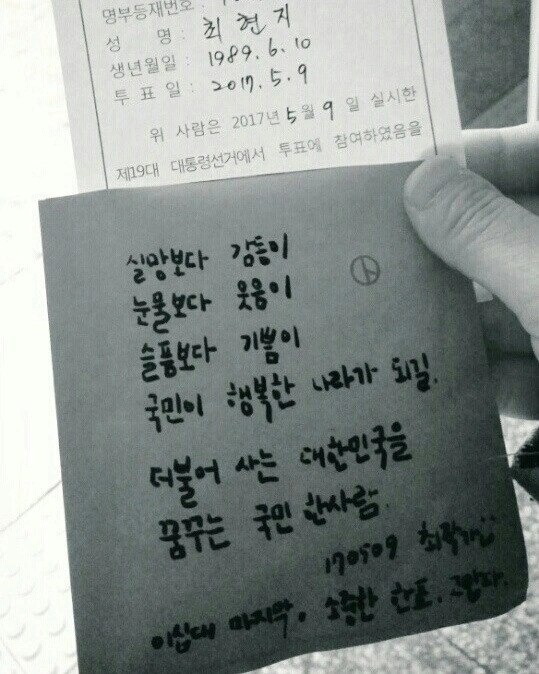 명부등재번호 :
성 명 : 최현지
생년월일 : 1989. 6. 10
투표일 : 2017. 5. 9
위 사람은 2017년 5월 9일 실시한
제19대 대통령선거에서 투표에 참여하였음을
실망보다 감동이
눈물보다 웃음이
슬픔보다 기쁨이
국민이 행복한 나라가 되길.
더불어 사는 대한민국을
꿈꾸는 국민 한사람.
170509 최작가
이십대 마지막. 소중한 한표. 고맙다.